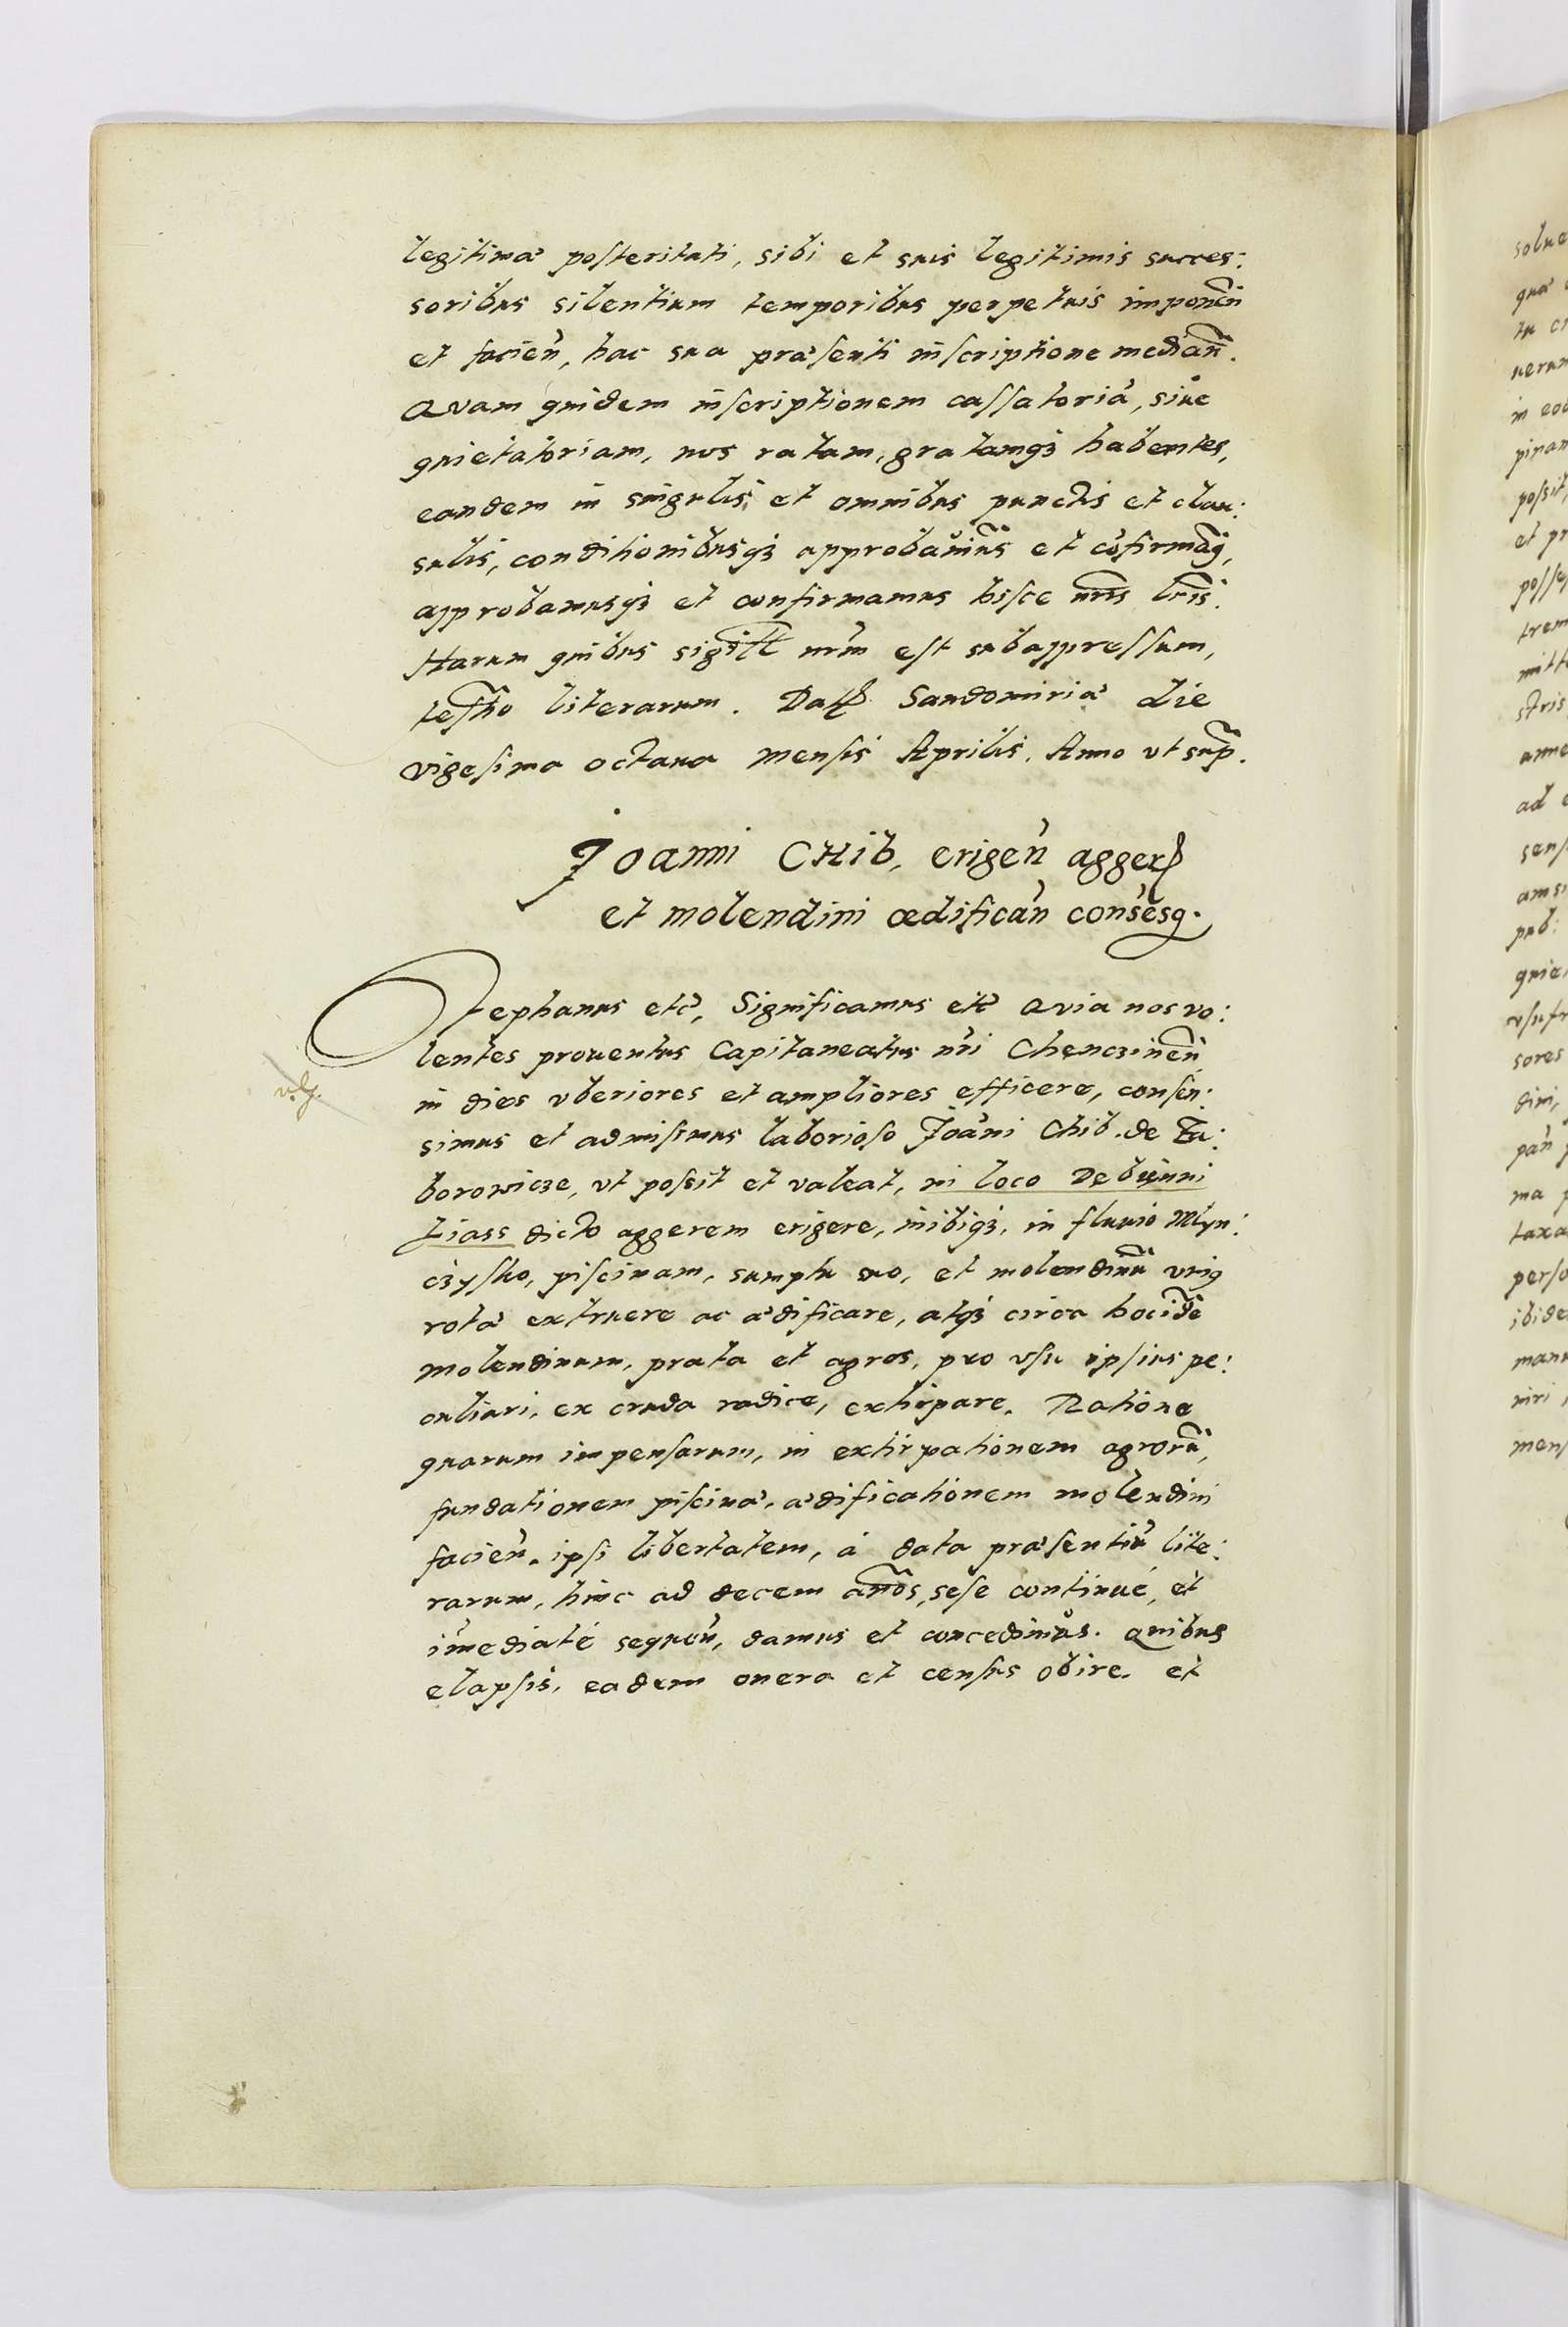 legitimæ posteritati, sibi et suis legitimis succes:
soribus silentium temporibus perpetuis imponeñ
et facień, hac sua præsenti inscriptione mediañ.
Quam quidem inscriptionem cassatoriã, siue
quietatoriam, nos ratam, gratamqȝ habentes,
eandem in singulis, et omnibus punctis et clau:
sulis, conditionibusqȝ approbauimus et cõfirmaũ,
approbamusqȝ et confirmamus hisce nris lris.
Harum quibus sigill nrm est subappressum,
testĩo literarum. Dat Sandomiriæ die
vigesima octaua mensis Aprilis. Anno vt sup.
Joanni CHib, erigeń agger
et molendini œdificań consesq.
Stephanus etc, Significamus etc Quia nos vo:
lentes prouentus Capitaneatus nri Chencinen̄
v.g.
in dies vberiores et ampliores efficere, consen:
simus et admisimus laborioso Joãni Chib. de Za:
borowicze, vt possit et valeat, in loco Debinni
Liass dicto aggerem erigere, inibiqȝ, in fluuio Mlyn:
czysko, piscinam, sumptu suo, et molendinũ vniq
rotæ extruere ac ædificare, atqȝ circa hocidẽ
molendinum, prata et agros, pro vsu ipsius pe:
culiari, ex cruda radice, extirpare. Ratione
quarum impensarum, in extirpationem agrorũ,
fundationem piscinæ, ædificationem molendini
facień. ipsi libertatem, à data præsentiũ lite:
rarum, hinc ad decem annos, sese continué, et
im̃ediaté sequeń, damus et concedimus. Quibus
elapsis, eadem onera et census obire. et